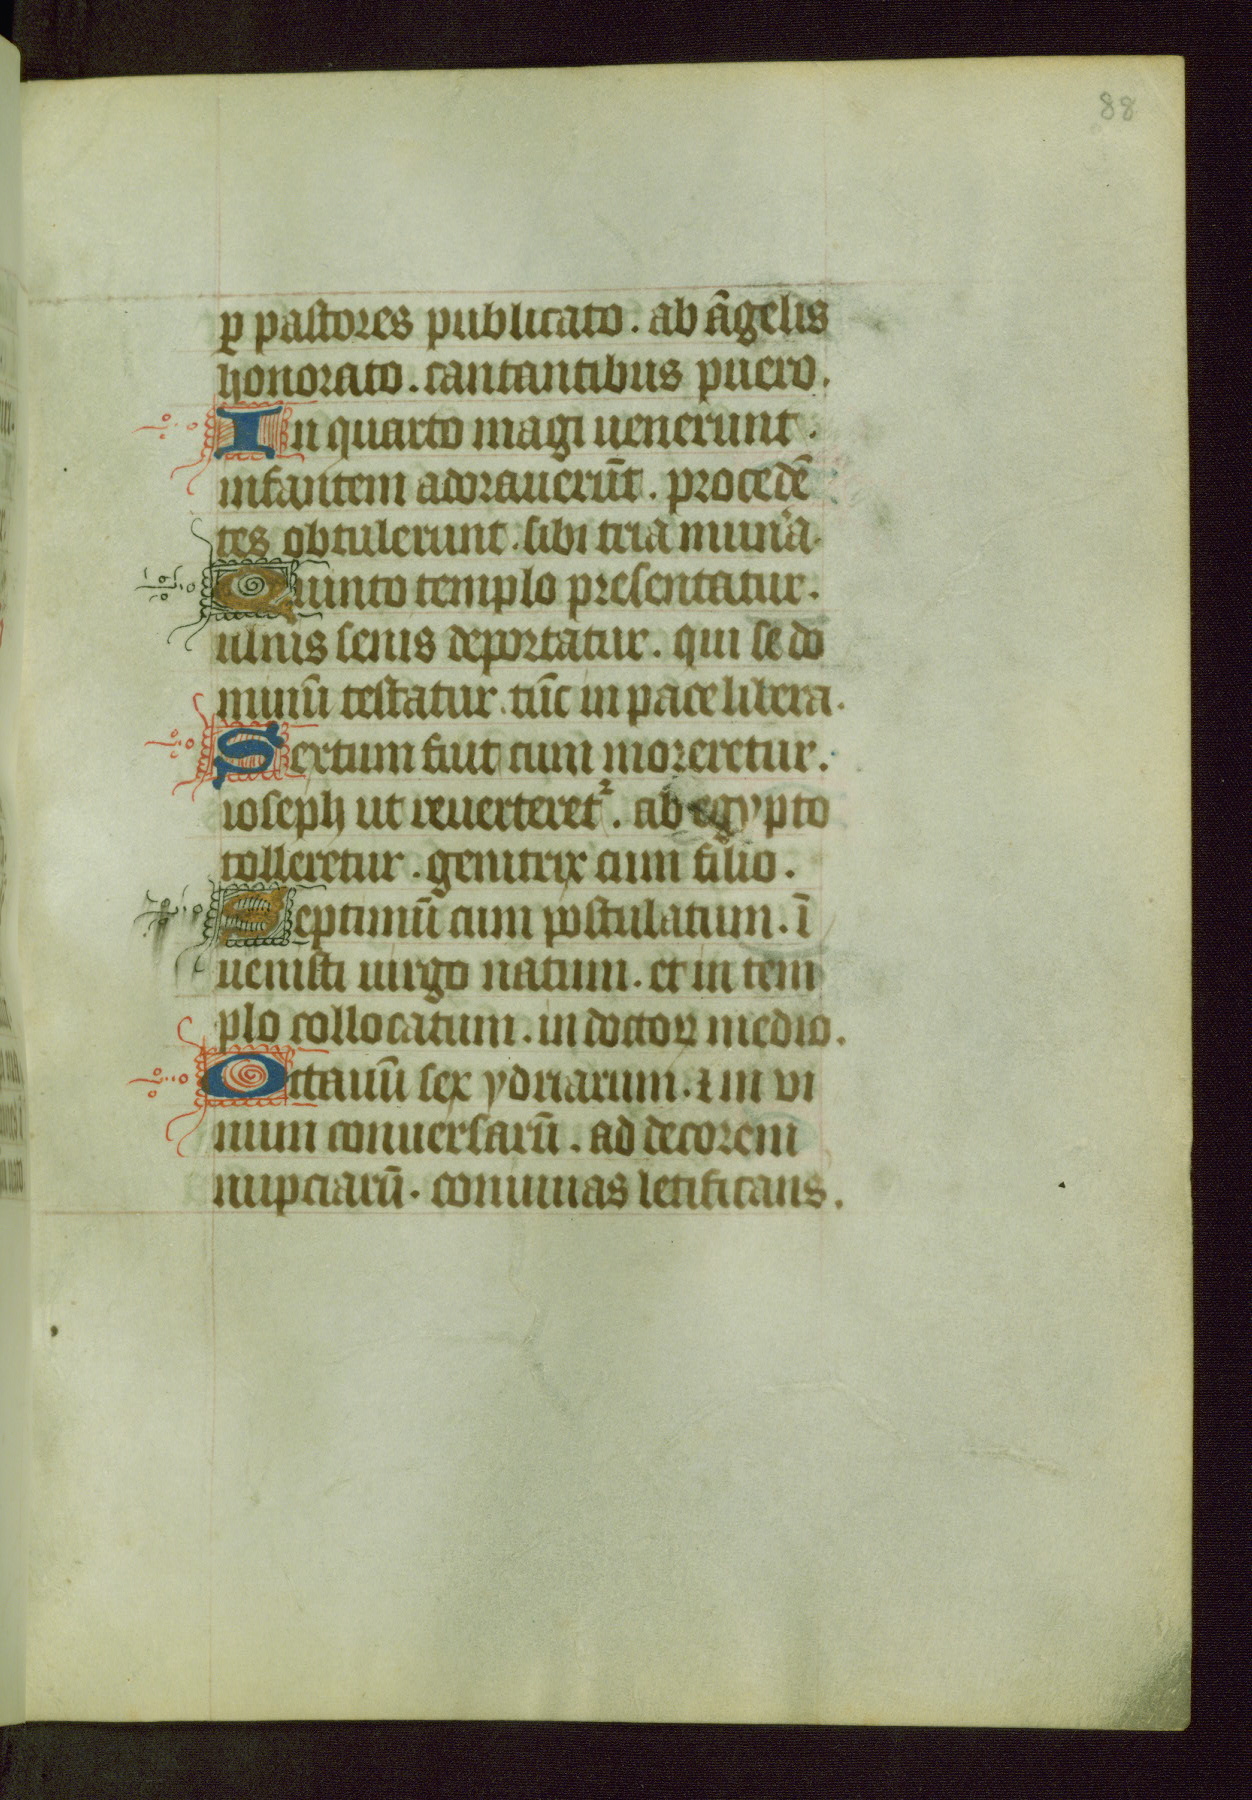 88
ꝑ pastores publicato. ab āgelis
honorato. cantantibus puero.
In quarto magi uenerunt.
infantem adorauerūt. procedē
tes obtulerunt. sibi tria mun̄a.
Quinto templo presentatur.
ulnis senis deportatur. qui se do
minū testatur. tūc in pace libera.
Sextum fiut cum moreretur.
ioseph ut reuerteret᷑. ab egypto
tolleretur. genitrix cum filio.
Septimū cum postulatum. ī
uenisti uirgo natum. et in tem
plo collocatum. in doctoꝝ medio.
Octauū sex ydriarum. ⁊ in vi
num conuersarū. ad decorem
nupciarū. conuiuas letificans.